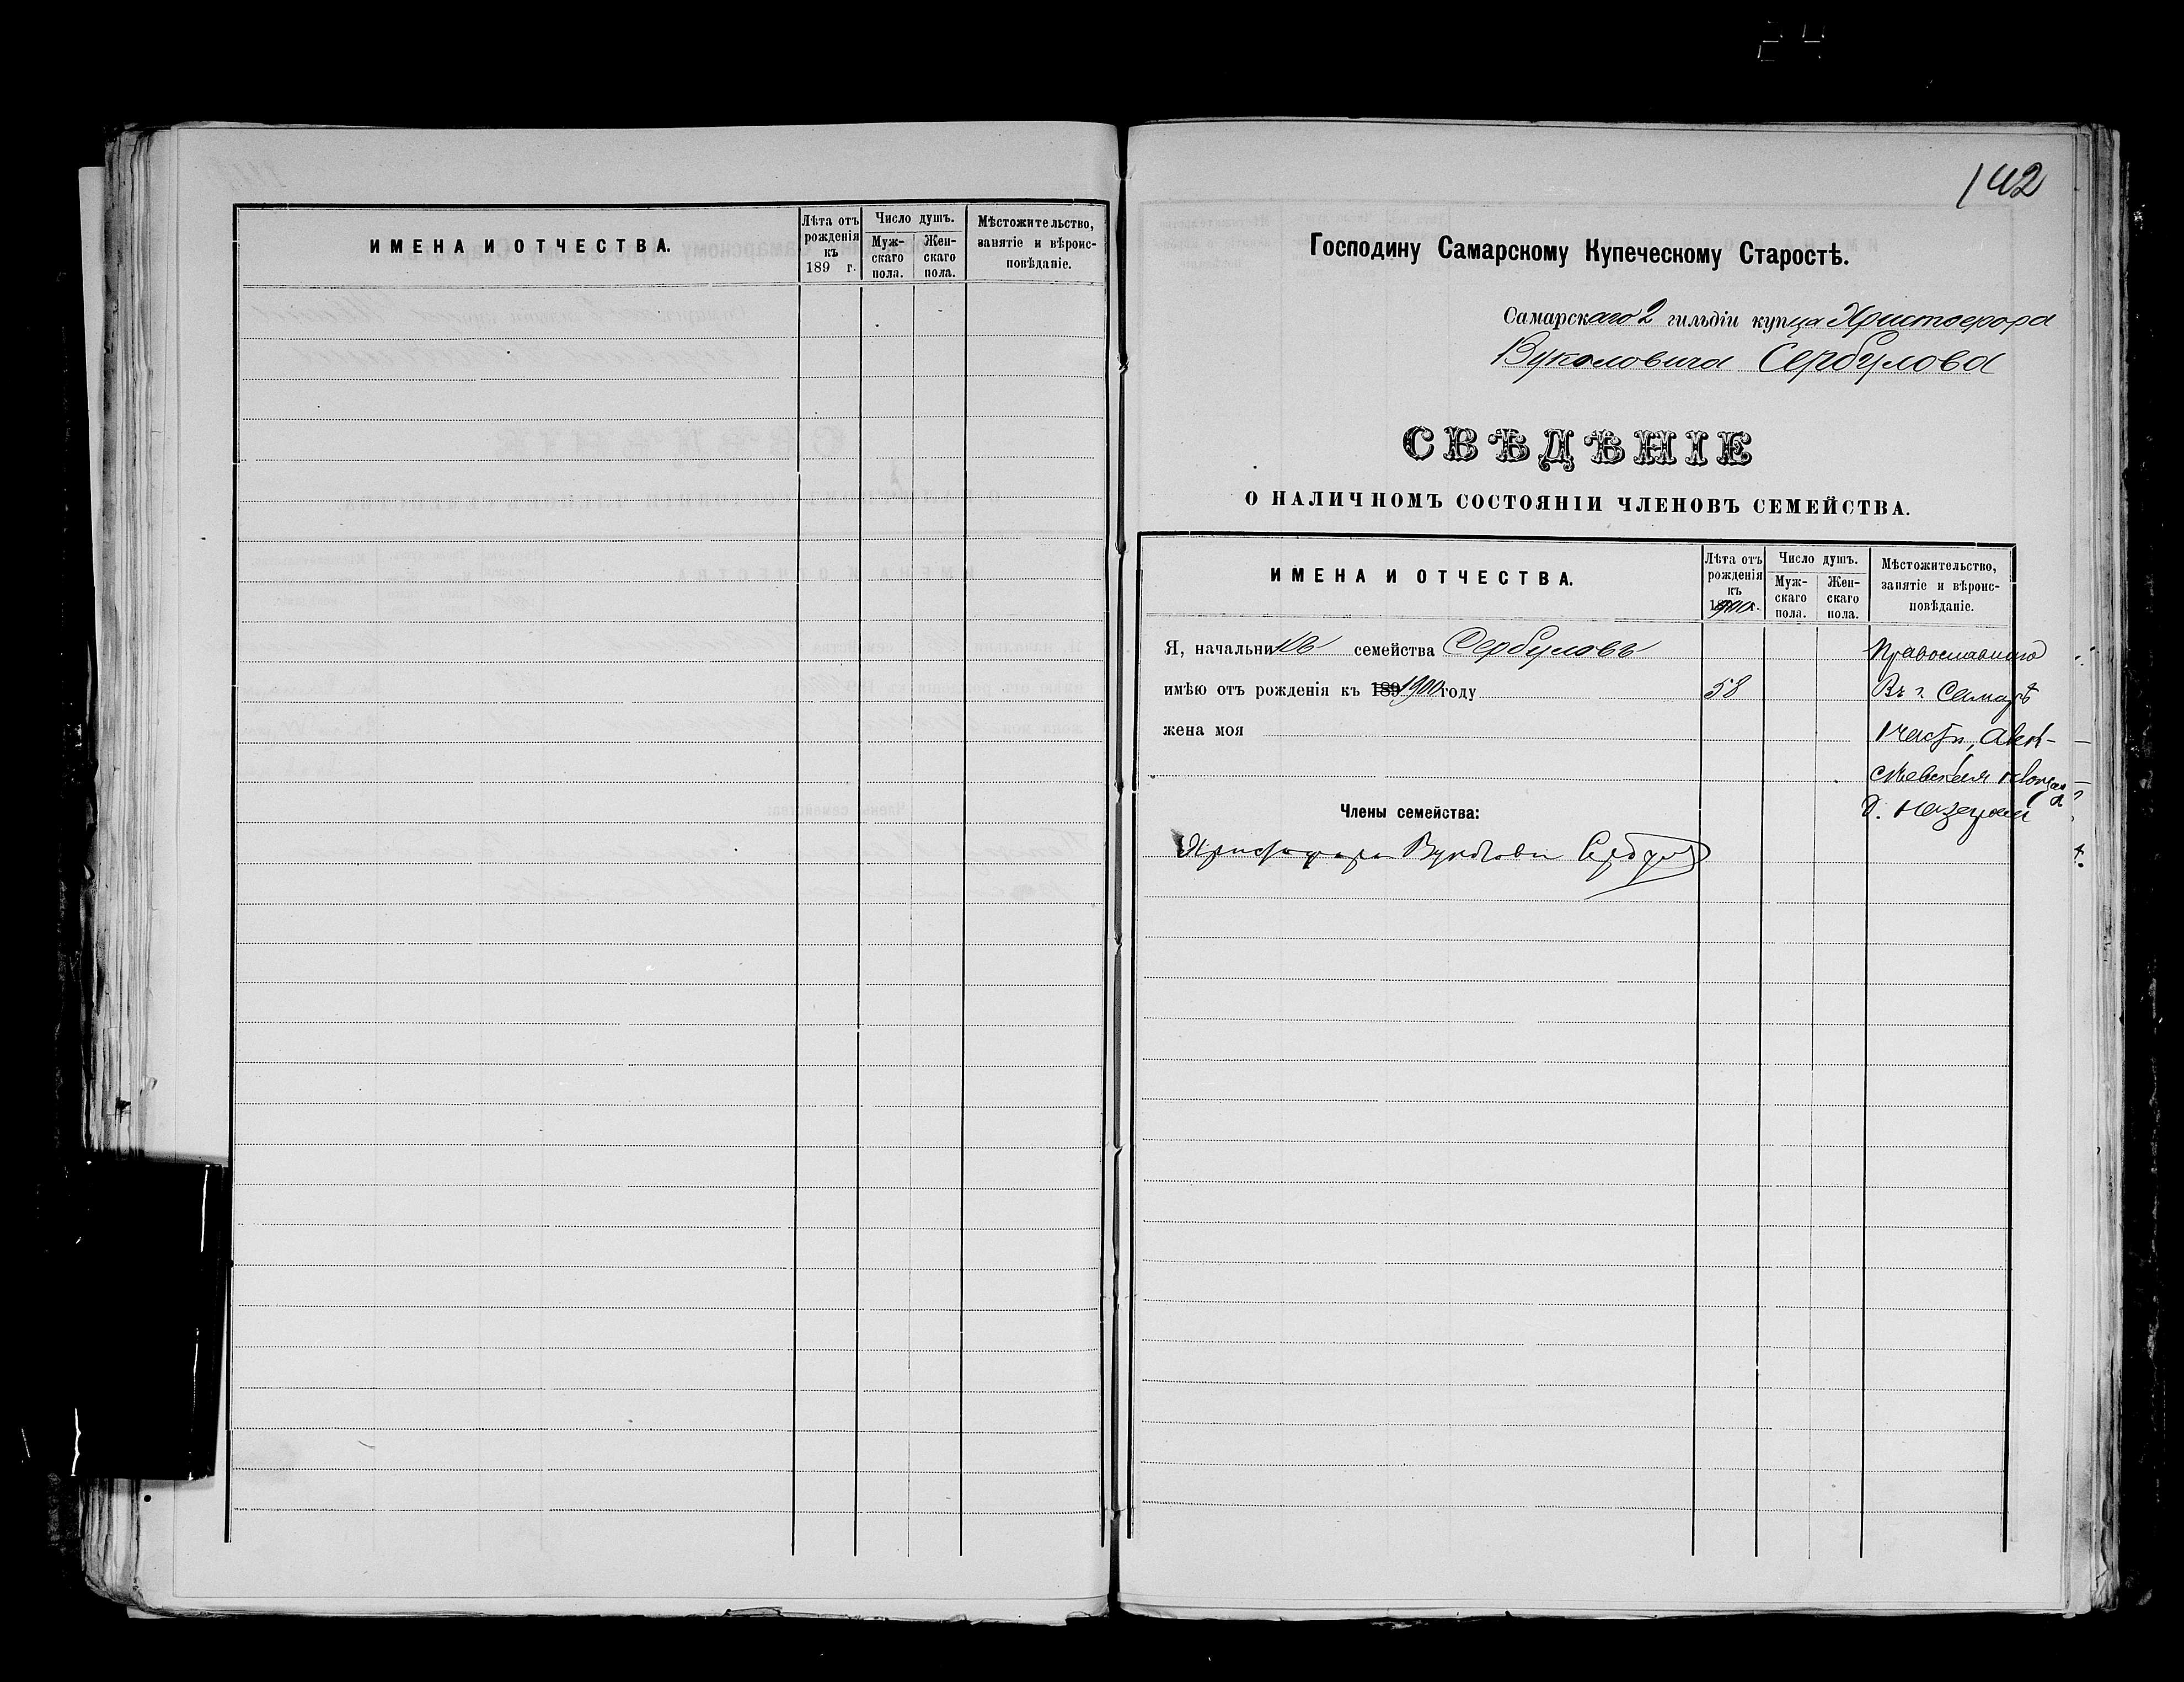 ИМЕНА И ОТЧЕСТВА.
Лѣта отъ рожденія къ 189 г.
Число душъ.
Мужскаго пола.
Женскаго пола.
Мѣстожительство, занятіе и вѣроисповѣданіе.
142
Господину Самарскому Купеческому Старостѣ.
Самарскаго 2 гильдіи купца Христофора
Вуколовича Сербулова
СВѢДѢНІЕ
О НАЛИЧНОМЪ СОСТОЯНІИ ЧЛЕНОВЪ СЕМЕЙСТВА.
ИМЕНА И ОТЧЕСТВА.
Лѣта отъ
рожденія
къ
1900 г.
Число душъ.
Муж-
скаго
пола.
Жен-
скаго
пола.
Мѣстожительство,
занятіе и вѣроис-
повѣданіе.
Я, начальникъ семейства Сербуловъ
Православнаго
имѣю отъ рожденія къ 189 1900 году 58
Въ г. Самарѣ
жена моя
1 части, Алек-
сѣевская
Члены семейства:
Христофоръ Вуколови Сербулов